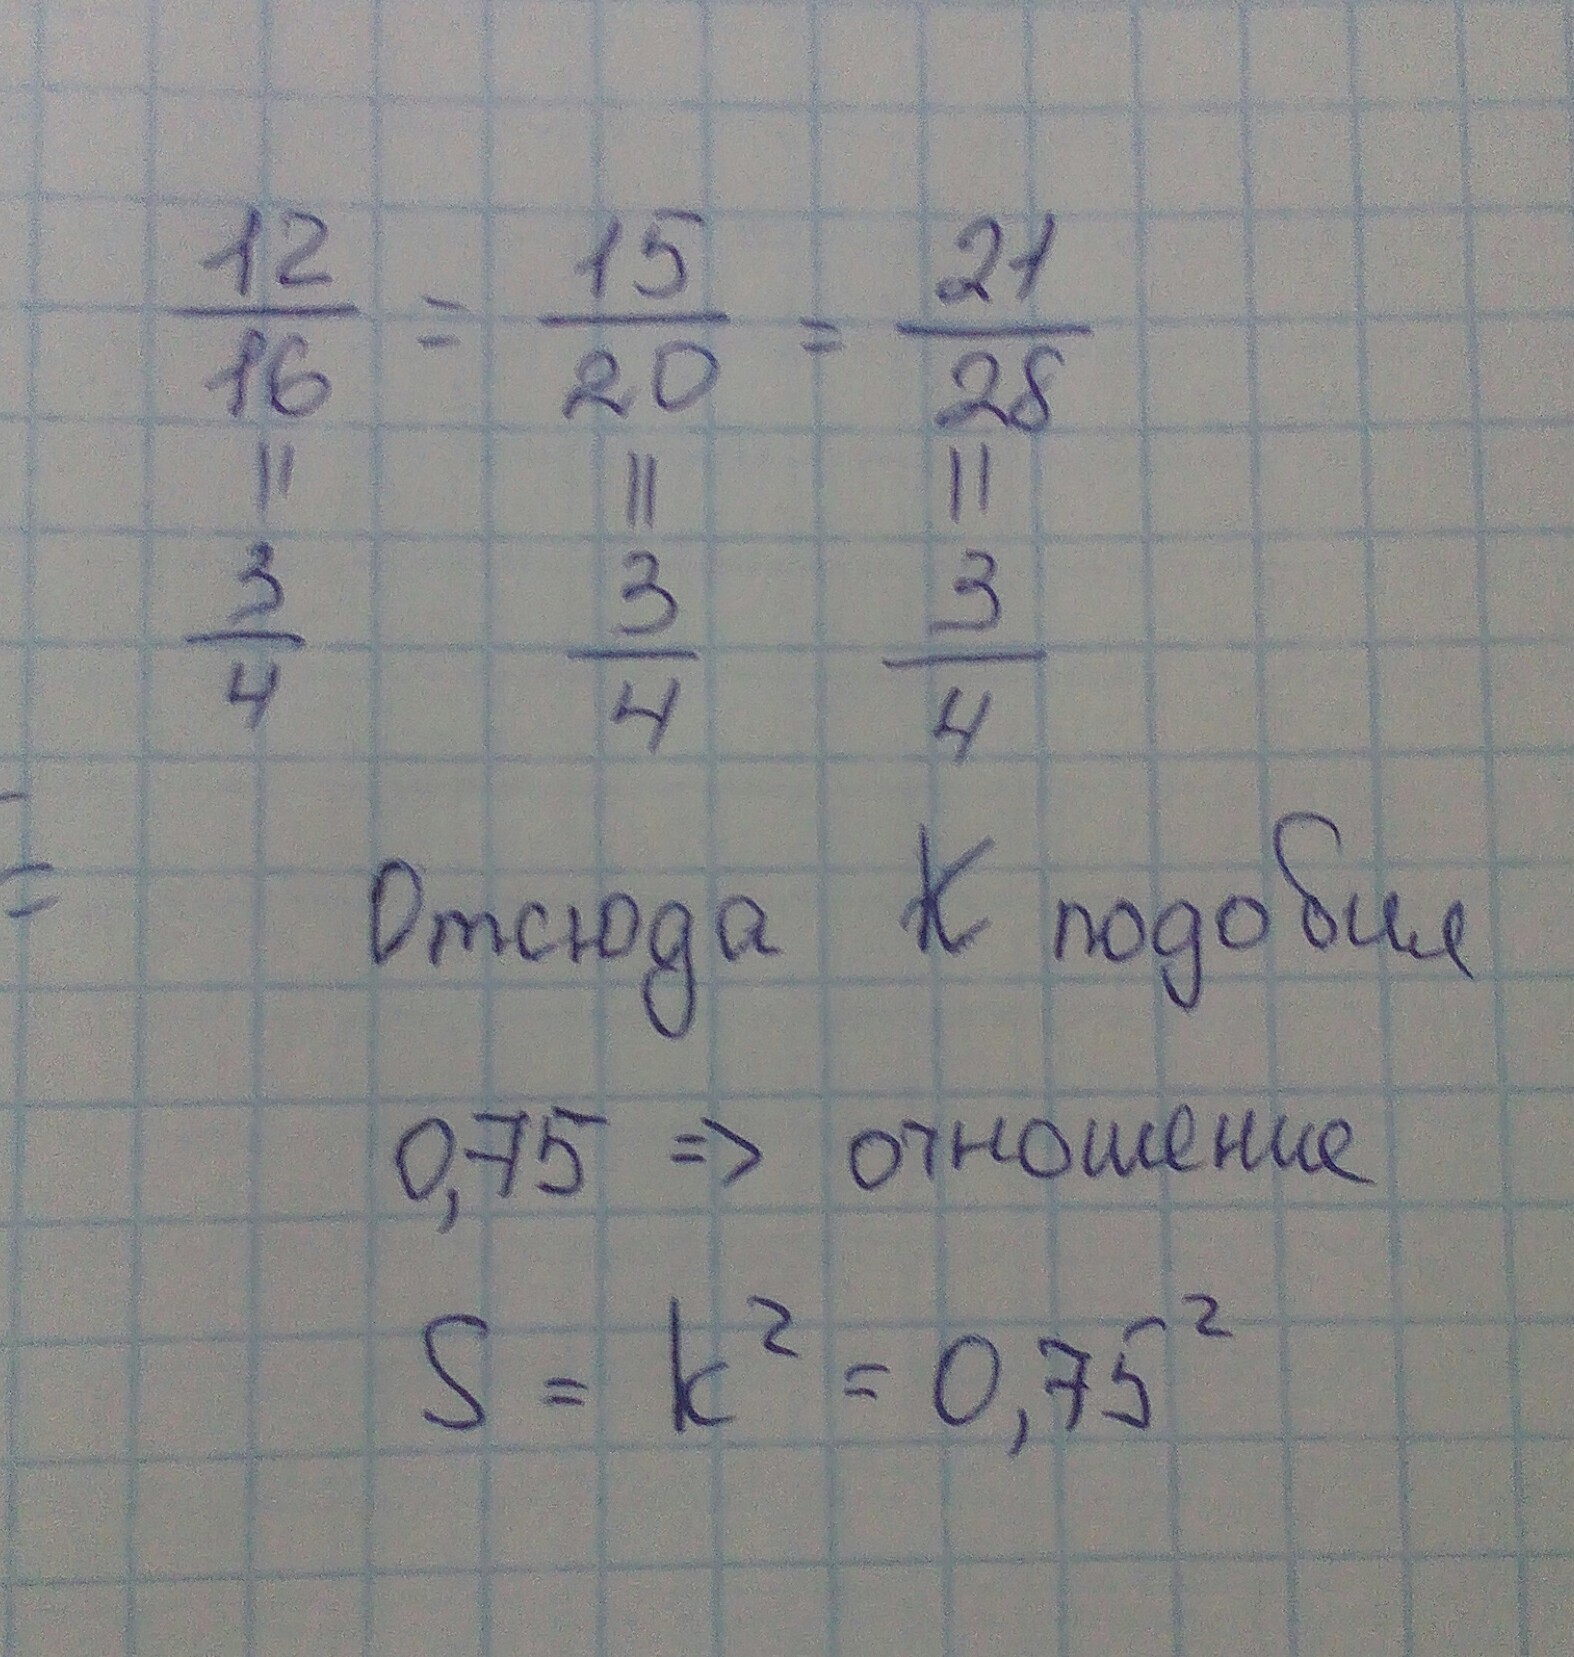 12/16 = 15/20 = 21/28
|| || ||
3/4 3/4 3/4
=
Отсюда К подобия
0,75 => отношение
S = k² = 0,75²